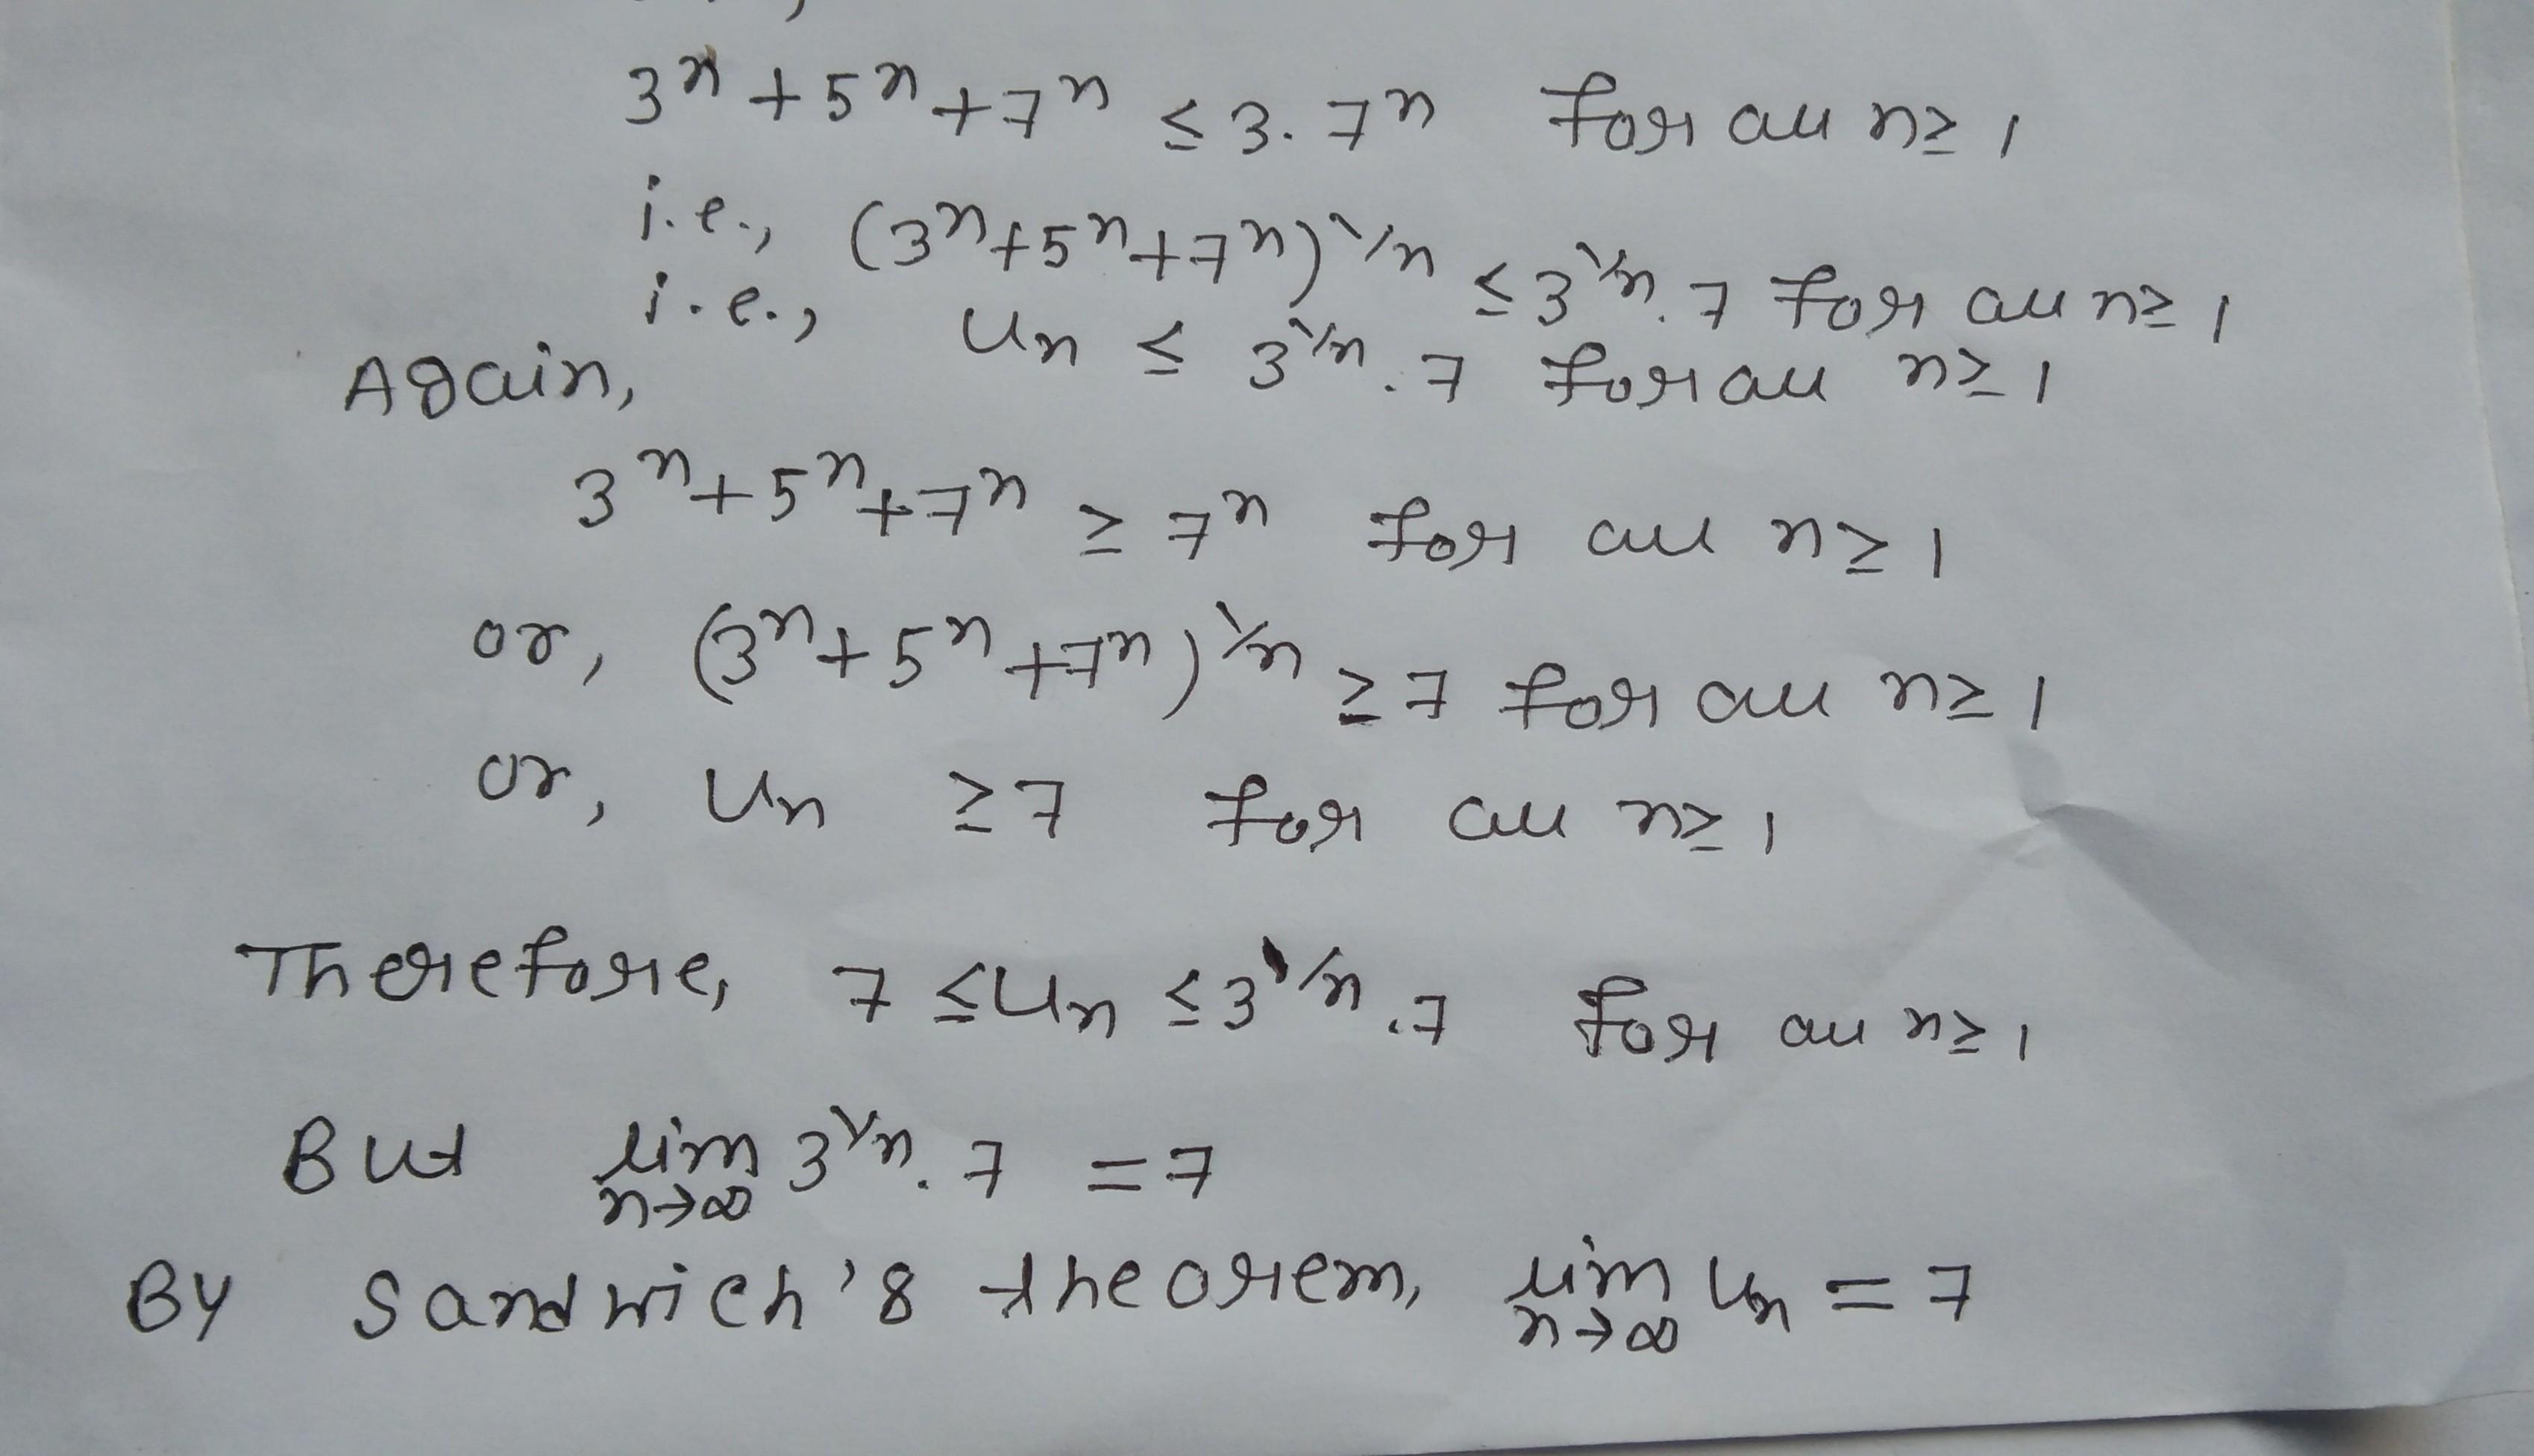 3ⁿ + 5ⁿ + 7ⁿ ≤ 3. 7ⁿ for all n ≥ 1
i.e., (3ⁿ + 5ⁿ + 7ⁿ)^1/n ≤ 3^1/n . 7 for all n ≥ 1
i.e., Un ≤ 3^1/n . 7 for all n ≥ 1
Again,
3ⁿ + 5ⁿ + 7ⁿ ≥ 7ⁿ for all n ≥ 1
or, (3ⁿ + 5ⁿ + 7ⁿ)^1/n ≥ 7 for all n ≥ 1
or, Un ≥ 7 for all n ≥ 1
Therefore, 7 ≤ Un ≤ 3^1/n . 7 for all n ≥ 1
But lim n→∞ 3^1/n . 7 = 7
By Sandwich's theorem, lim n→∞ Un = 7